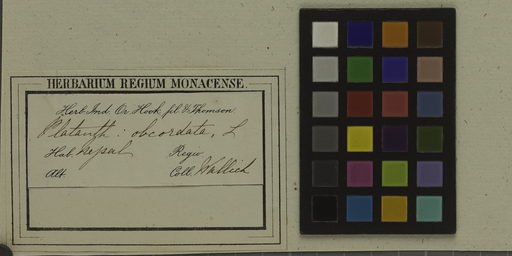 HERBARIUM REGIUM MONACENSE.
Herb. Ind. Or. Hook. fil. & Thomson.
Platanth: obcordata, L
Hab. Nepal Regio
Alt. Coll. Wallich